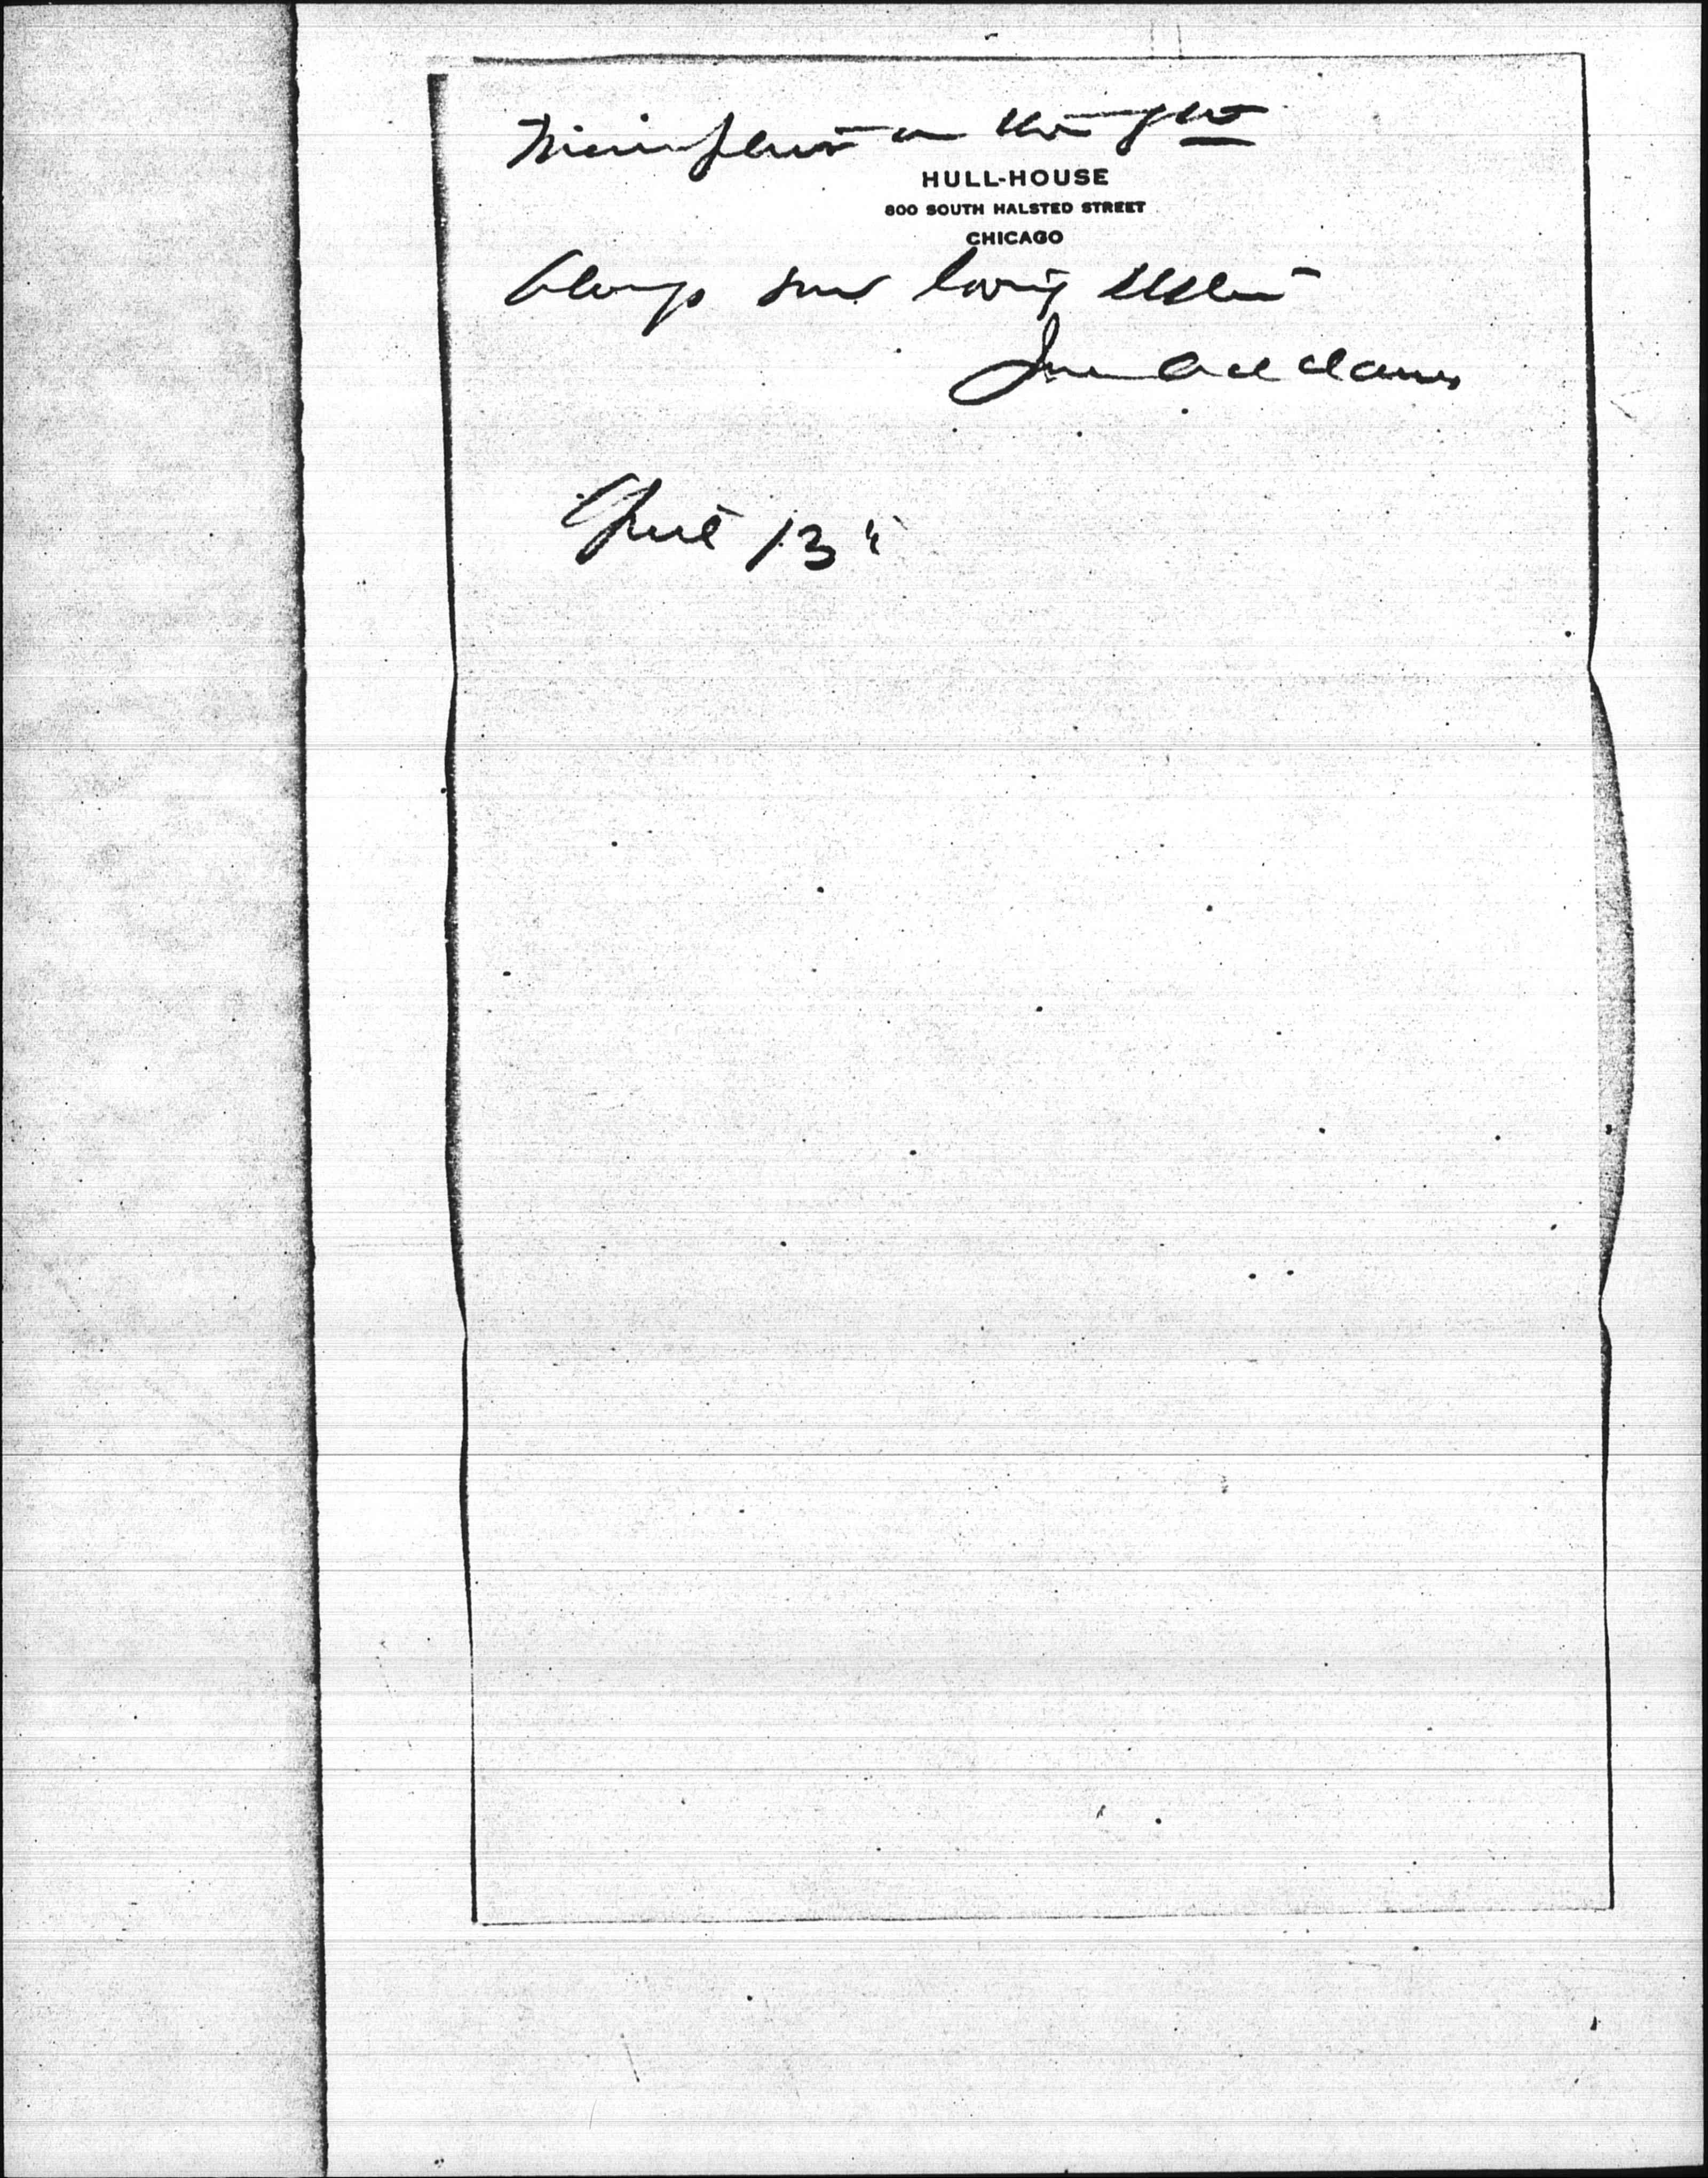 Minneapolis on the 9th
HULL-HOUSE
800 SOUTH HALSTED STREET
CHICAGO
Always your loving sister
Jane Addams
April 13"